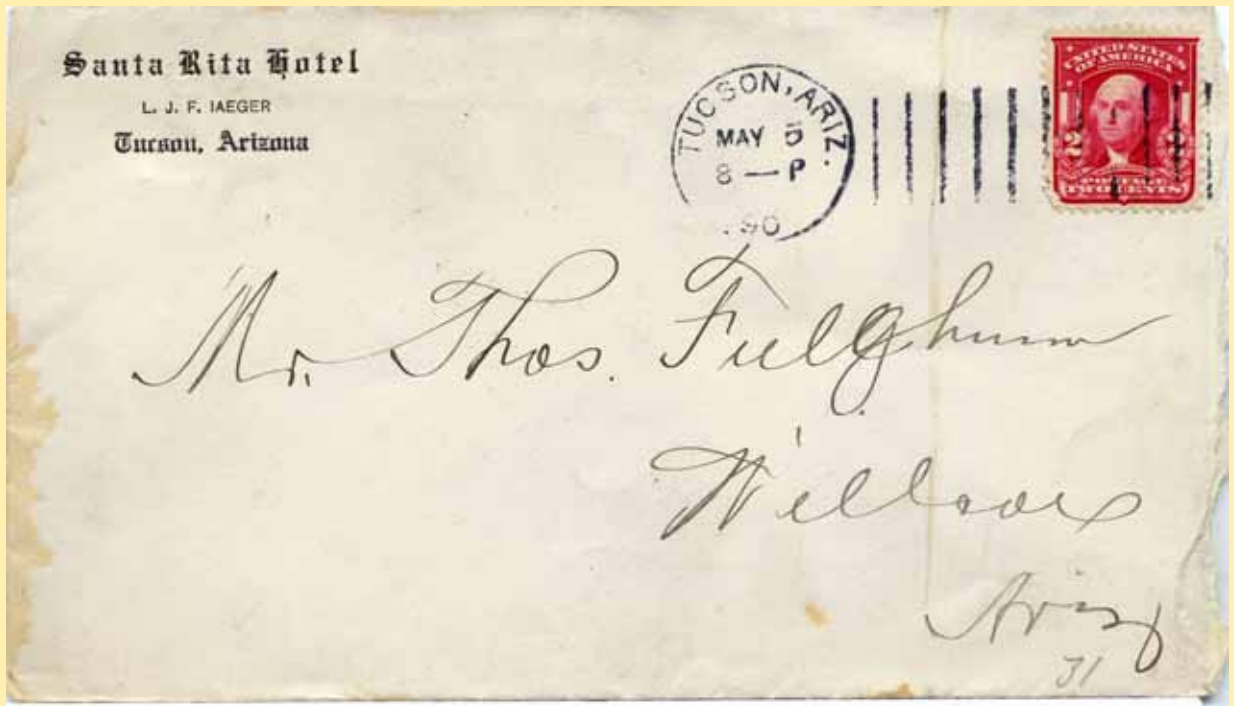 Santa Rita Hotel
L. J. F. IAEGER
Tucson, Arizona
TUCSON, ARIZ.
MAY 5
8 — P
190
UNITED STATES
OF AMERICA
2
POSTAGE
TWO CENTS
Mr. Thos. Fulghum
Willcox
Ariz
31